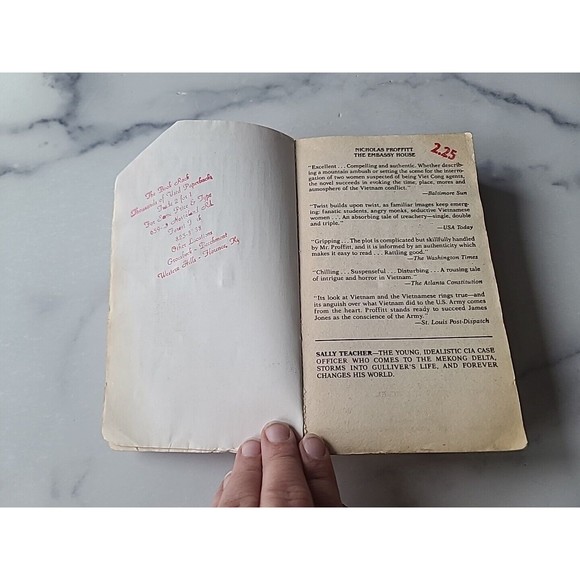 The Book Rack
Thousands of Used Paperbacks
Other Location
Florence, Ky
NICHOLAS PROFFITT
THE EMBASSY HOUSE
2.25
"Excellent . . . Compelling and authentic. Whether describ-
ing a mountain ambush or setting the scene for the interro-
gation of two women suspected of being Viet Cong agents,
the novel succeeds in evoking the time, place, mores and
atmosphere of the Vietnam conflict."
—Baltimore Sun
"Twist builds upon twist, as familiar images keep emerg-
ing: fanatic students, angry monks, seductive Vietnamese
women. . . . An absorbing tale of treachery—single, double
and triple."
—USA Today
"Gripping . . . The plot is complicated but skillfully handled
by Mr. Proffitt, and it is informed by an authenticity which
makes it easy to read . . . Rattling good."
—The Washington Times
"Chilling . . . Suspenseful . . . Disturbing . . . A rousing tale
of intrigue and horrors in Vietnam."
—The Atlanta Constitution
"Its look at Vietnam and the Vietnamese rings true—and
its anguish over what Vietnam did to the U.S. Army comes
from the heart. Proffitt stands ready to succeed James
Jones as the conscience of the Army."
—St. Louis Post-Dispatch
SALLY TEACHER—THE YOUNG, IDEALISTIC CIA CASE
OFFICER WHO COMES TO THE MEKONG DELTA,
STORMS INTO GULLIVER'S LIFE, AND FOREVER
CHANGES HIS WORLD.